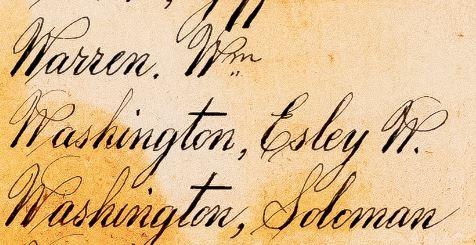 Warren. Wm
Washington, Esley W.
Washington, Soloman